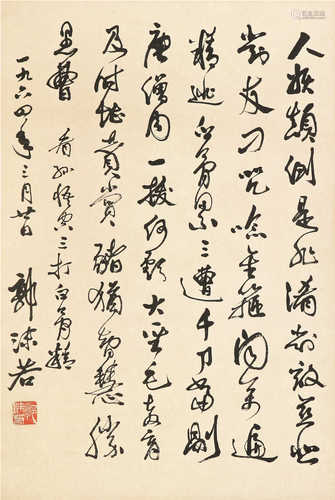 人妖颠倒是非淆对敌慈悲
对友刁咒念金箍闻萬遍
精逃白骨累三遭千刀当剮
唐僧肉一拔何虧大圣毛教育
及时堪赞赏猪犹智慧胜
愚曹
看孙悟空三打白骨精
一九六四年三月廿日
郭沫若